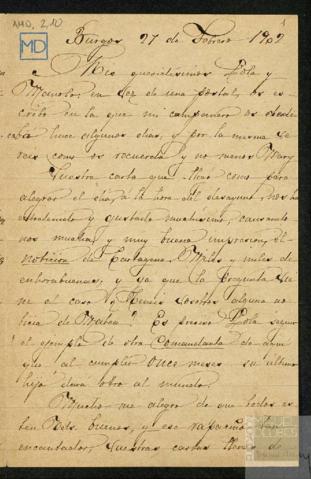 AHD, 2,10
1
MD
Burgos 27 de Febrero 1902
Mis queridisimos Lola y
Manolo: en vez de una postal, os es-
cribo en la que mi compañero os
hace algunos dias, y por la misma ve-
reis como os recuerda y no menos Mary
Vuestra carta que llegó como para
alegrar el dia, a la hora del desayuno, nos ha
entretenido y gustado muchisimo, causando
nos mucha y muy buena impresion, la
noticia de Cartagena. Miles y miles de
enhorabuenas, y ya que la pregunta vie-
ne al caso ¿Teneis vosotros alguna no-
ticia de ? Es preciso Lola seguir
el ejemplo de otra Comandanta de aqui
que al cumplir once meses su último
hijo otro al mundo.
Mucho me alegro de que todos es-
ten Vds. buenos, y ese tan
encantador. Vuestras cartas llenas de